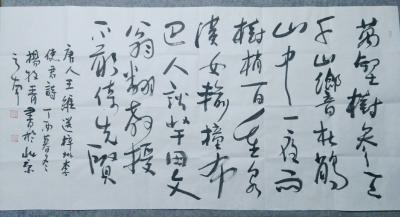 萬壑樹參天
千山響杜鵑
山中一夜雨
樹杪百重泉
漢女輸橦布
巴人訟芋田文
翁翻教授
不敢倚先賢
唐人王維送梓州李
使君詩丁酉暮冬
楊牧青書於北京